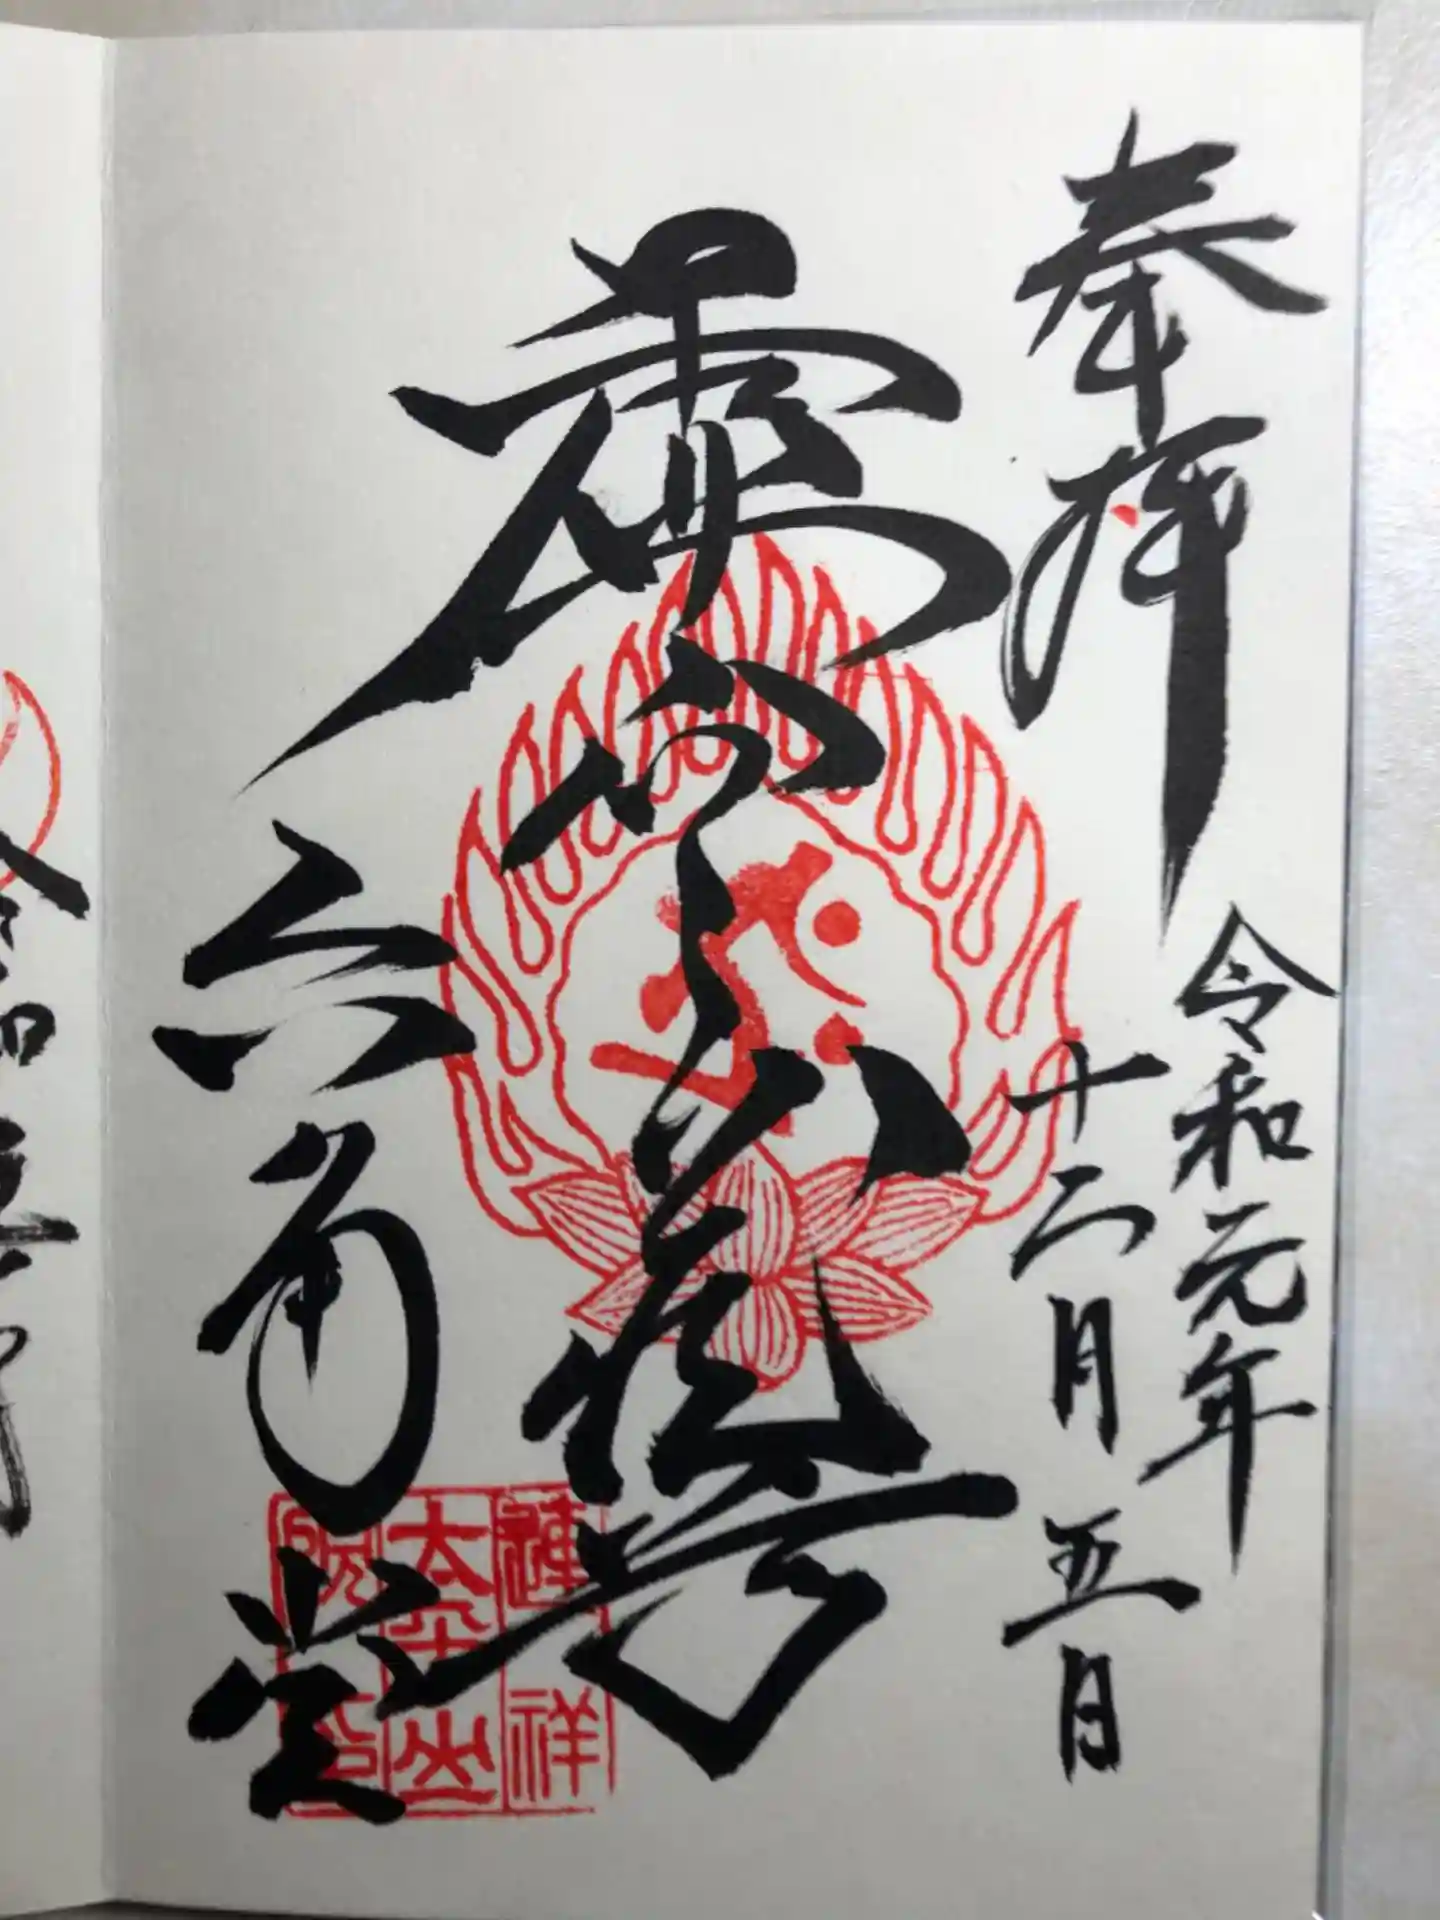 奉拝
令和元年
十二月五日
虚空蔵尊
六角堂
蓮祥
太平山